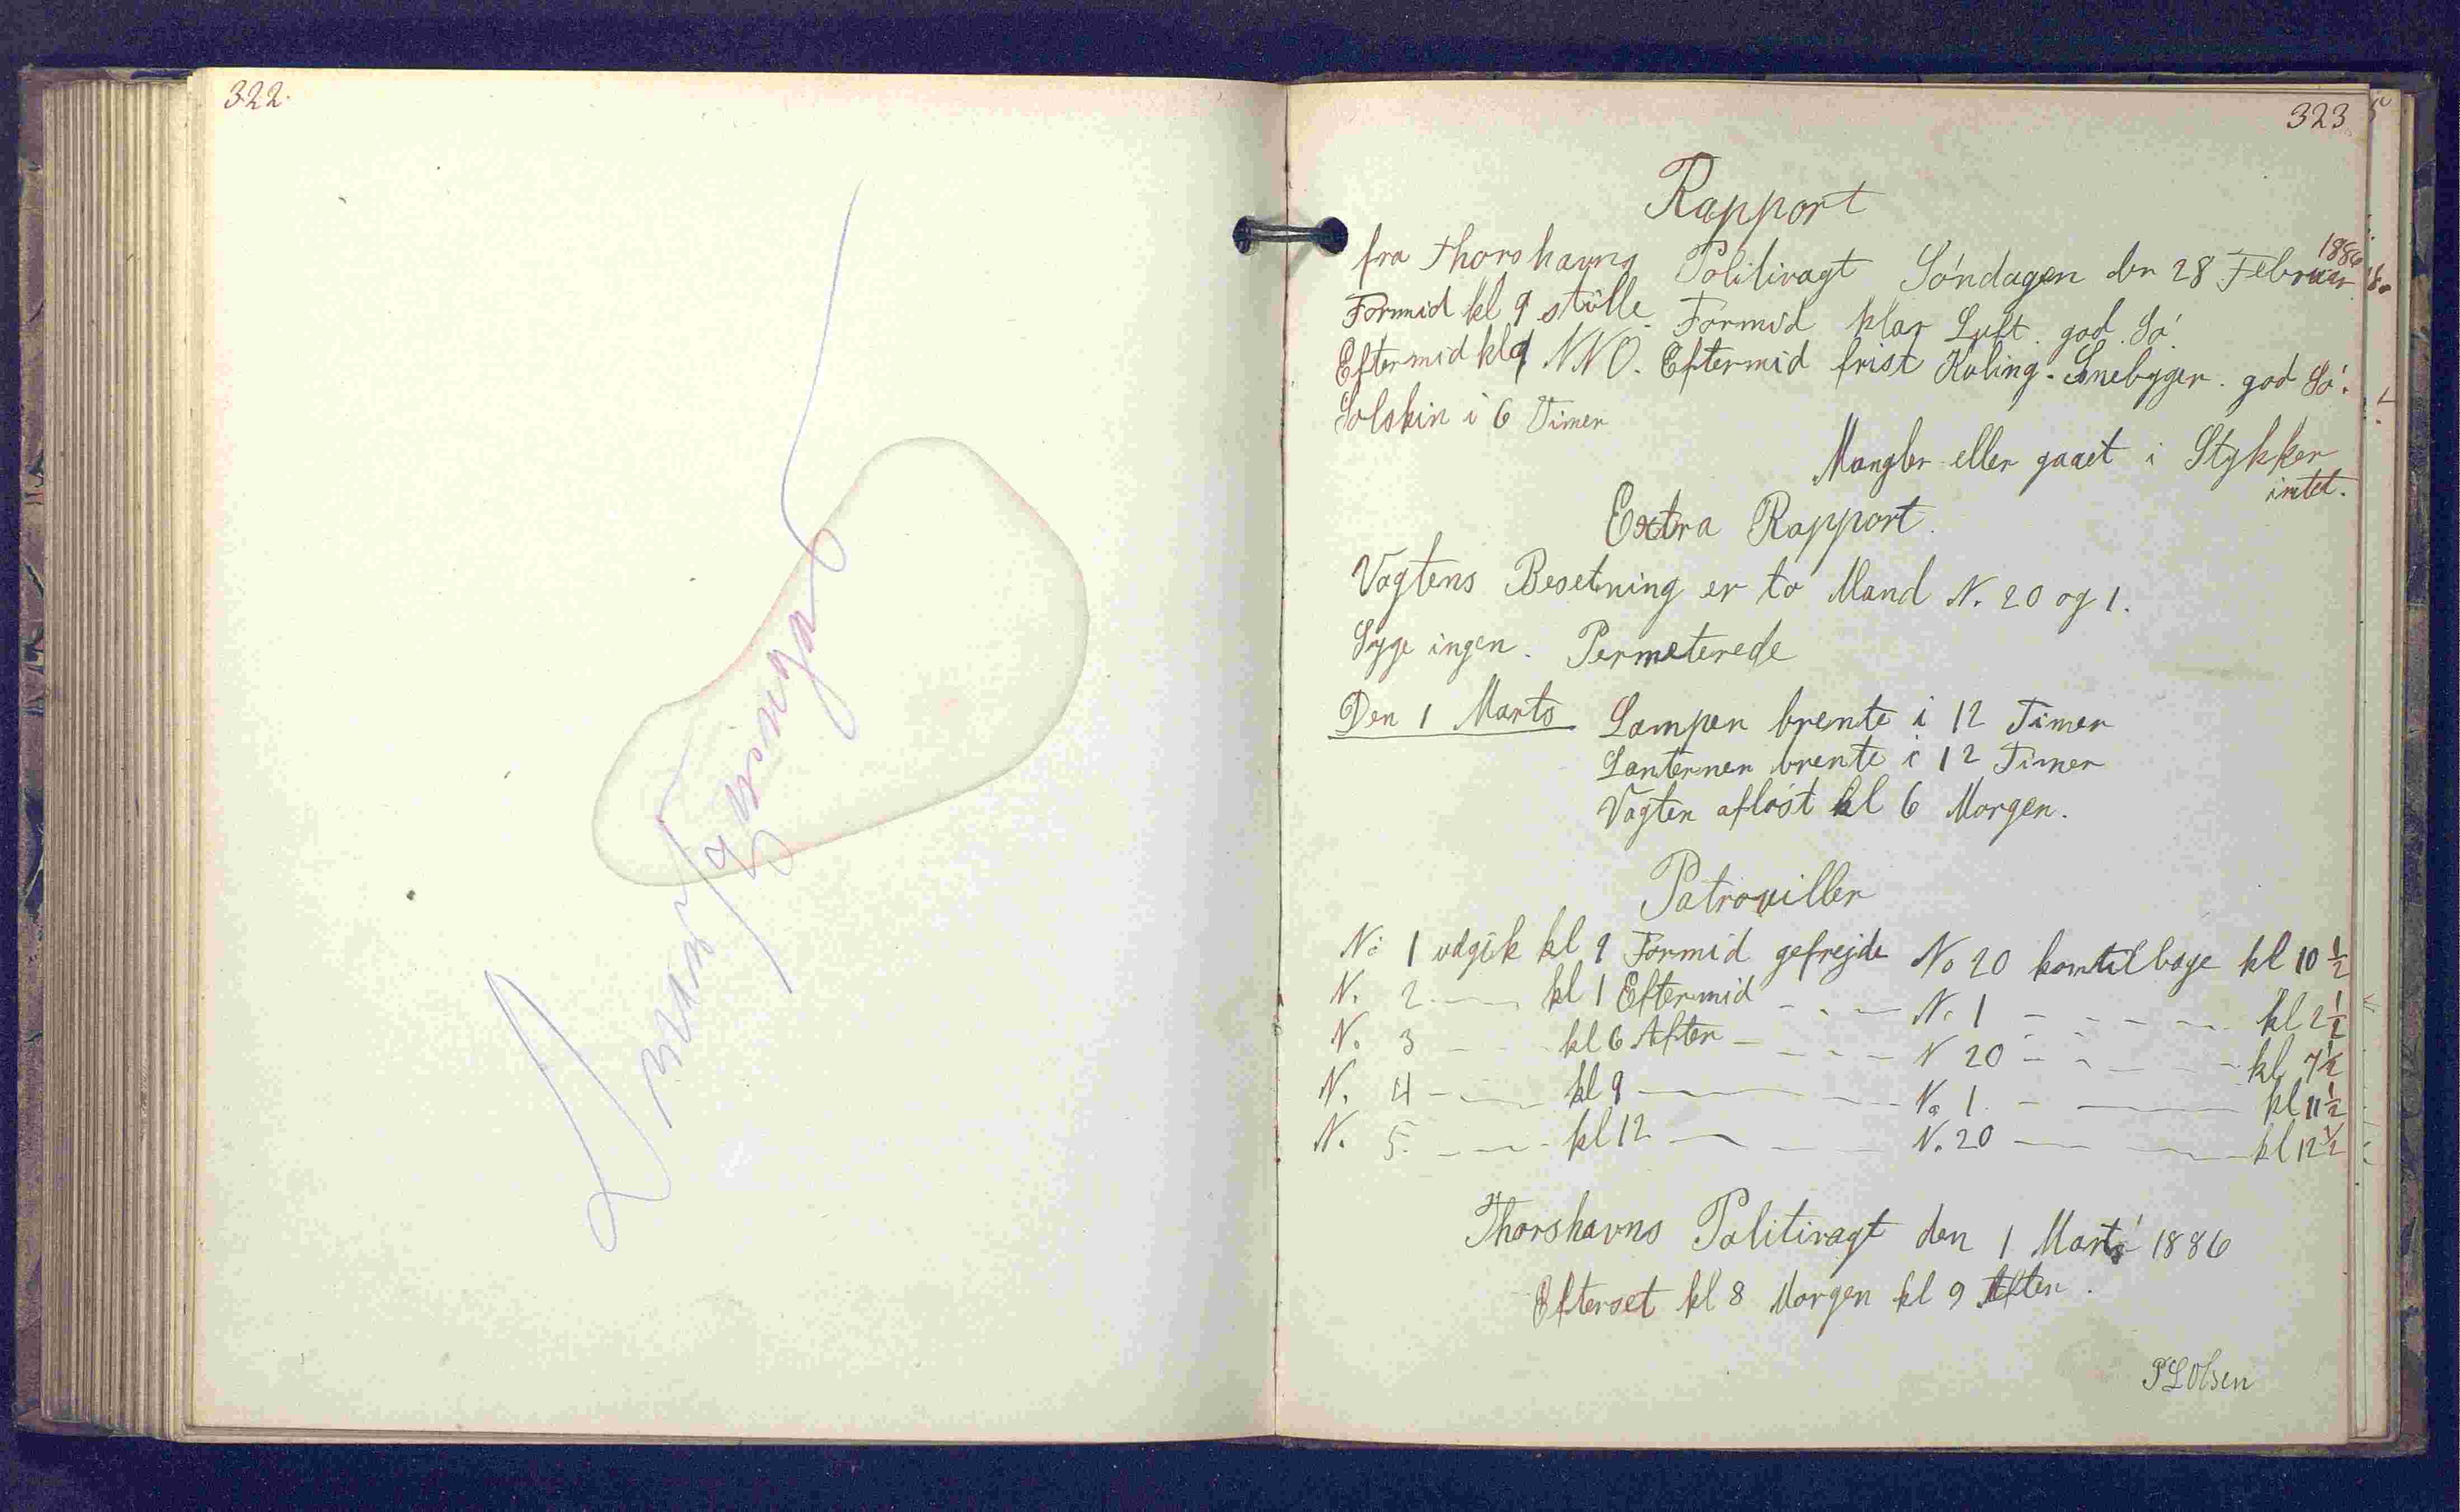 322.
323
Rapport
fra Thorshavns Politivagt Søndagen den 28 Februar 1886
Formid kl 9 stille. Formid klar Luft. god Sø.
Eftermid kl 9 NNO. Eftermid frisk Kuling. Snebyger. god Sø.
Solskin i 6 Timer
Mangler eller gaaet i Stykker
intet.
Extra Rapport.
Vagtens Besetning er to Mand N. 20 og 1.
Syge ingen. Permeterede
Den 1 Marts Lampen brente i 12 Timer
Lanternen brente i 12 Timer
Vagten afløst kl 6 Morgen.
Patrouiller
No 1 udgik kl 9 Formid gefrejde No 20 kom tilbage kl 10 1/2
N. 2 — kl 1 Eftermid - - - N. 1 - - - - kl 2 1/2
N. 3 — kl 6 Aften - - - - N 20 - - - - kl 7 1/2
N. 4 — kl 9 — — No 1. - — kl 11 1/2
N. 5. — kl 12 — — N. 20 — — kl 12 1/2
Thorshavns Politivagt den 1 Marts 1886
Efterset kl 8 Morgen kl 9 Aften.
PL Olsen